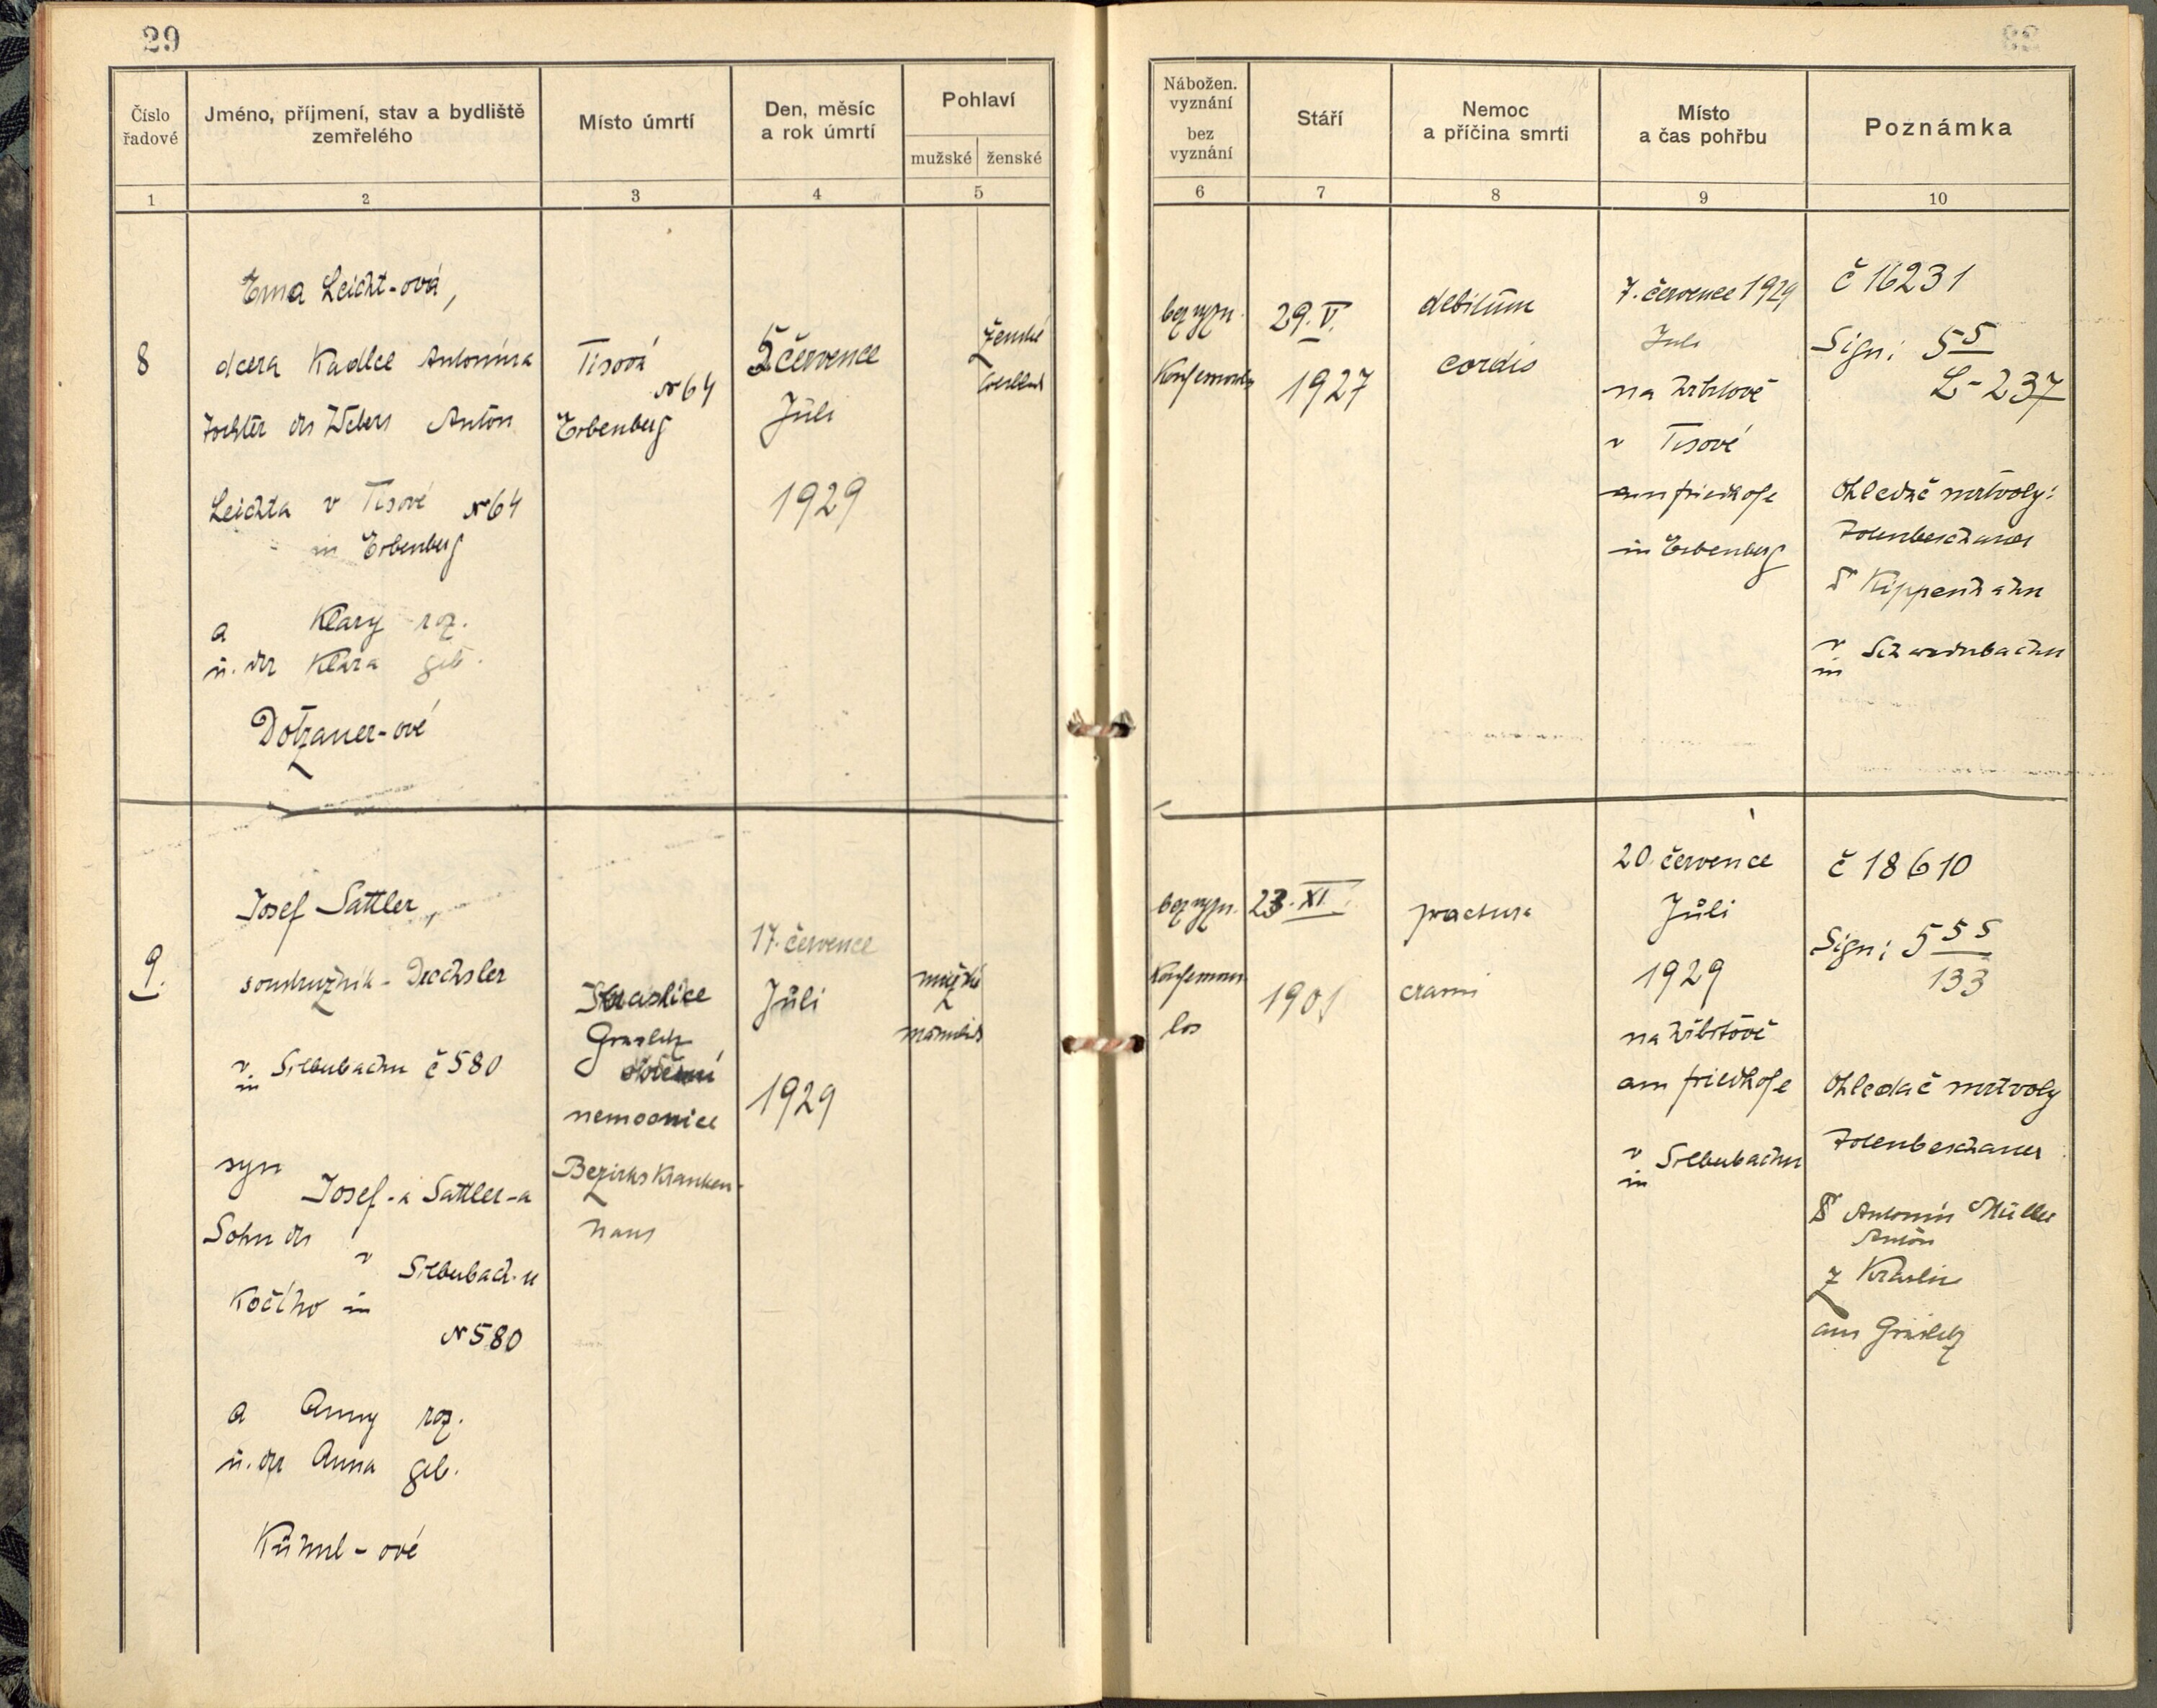 29
Číslo řadové
Jméno, příjmení, stav a bydliště zemřelého
Místo úmrtí
Den, měsíc a rok úmrtí
Pohlaví
mužské ženské
1 2 3 4 5
Nábožen. vyznání
bez vyznání
Stáří
Nemoc a příčina smrti
Místo a čas pohřbu
Poznámka
6 7 8 9 10
8
Erna Leicht-ová,
dcera Kadlce Antonína
Tochter des Webers Anton
Leichta v Tisové № 64
in Erbenberg
a Klary roz.
u. der Klara geb.
Dotzauer-ové
Tisová
№ 64
Erbenberg
5 července
Juli
1929
ženské
weiblich
bez vyzn.
29. V.
1927
debilum
cordis
7. července 1929
Juli
na hřbitově
v Tisové
am friedhofe
in Erbenberg
č 16231
Sign: 5 5
L-237
Ohledač mrtvoly:
Totenbeschauer
Dr Kippenhahn
v
in Schwaderbachu
9.
Josef Sattler,
soustružník - Drechsler
v
in Silberbachu č 580
syn
Josef-a Sattler-a
Sohn des
v Silberbach-u
Kočího in
№ 580
a Anny roz.
u. der Anna geb.
Kühnl-ové
Kraslice
Graslitz
nemocnice
Bezirkskranken-
haus
17. července
Juli
1929
mužské
männlich
bez vyzn.
Konfessions
los
23. XI.
1901
fractura
cranii
20. července
Juli
1929
na hřbitově
am friedhofe
v
in Silberbachu
č 18610
Sign: 5 5 5
133
Ohledač mrtvoly
Totenbeschauer
Dr Antonín Müller
Anton
z Kraslic
aus Graslitz